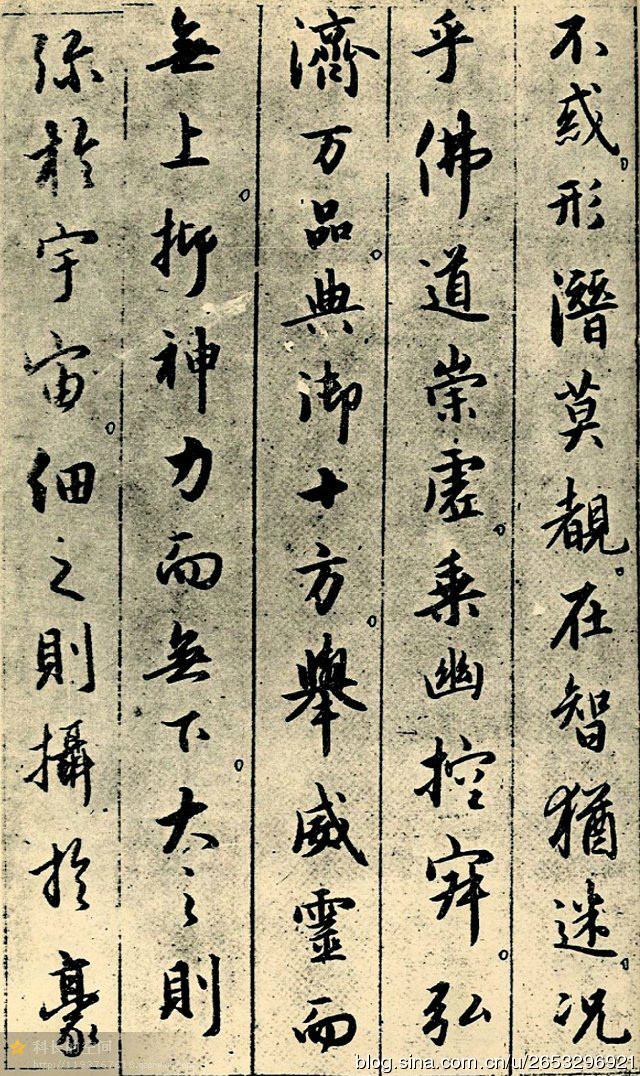 不惑。形潛莫覩。在智猶迷。况
乎佛道崇虛。乘幽控寂。弘
濟万品。典御十方。舉威靈而
無上。抑神力而無下。大之則
弥於宇宙。細之則攝於豪
科长的空间
blog.sina.com.cn/u/2653296921